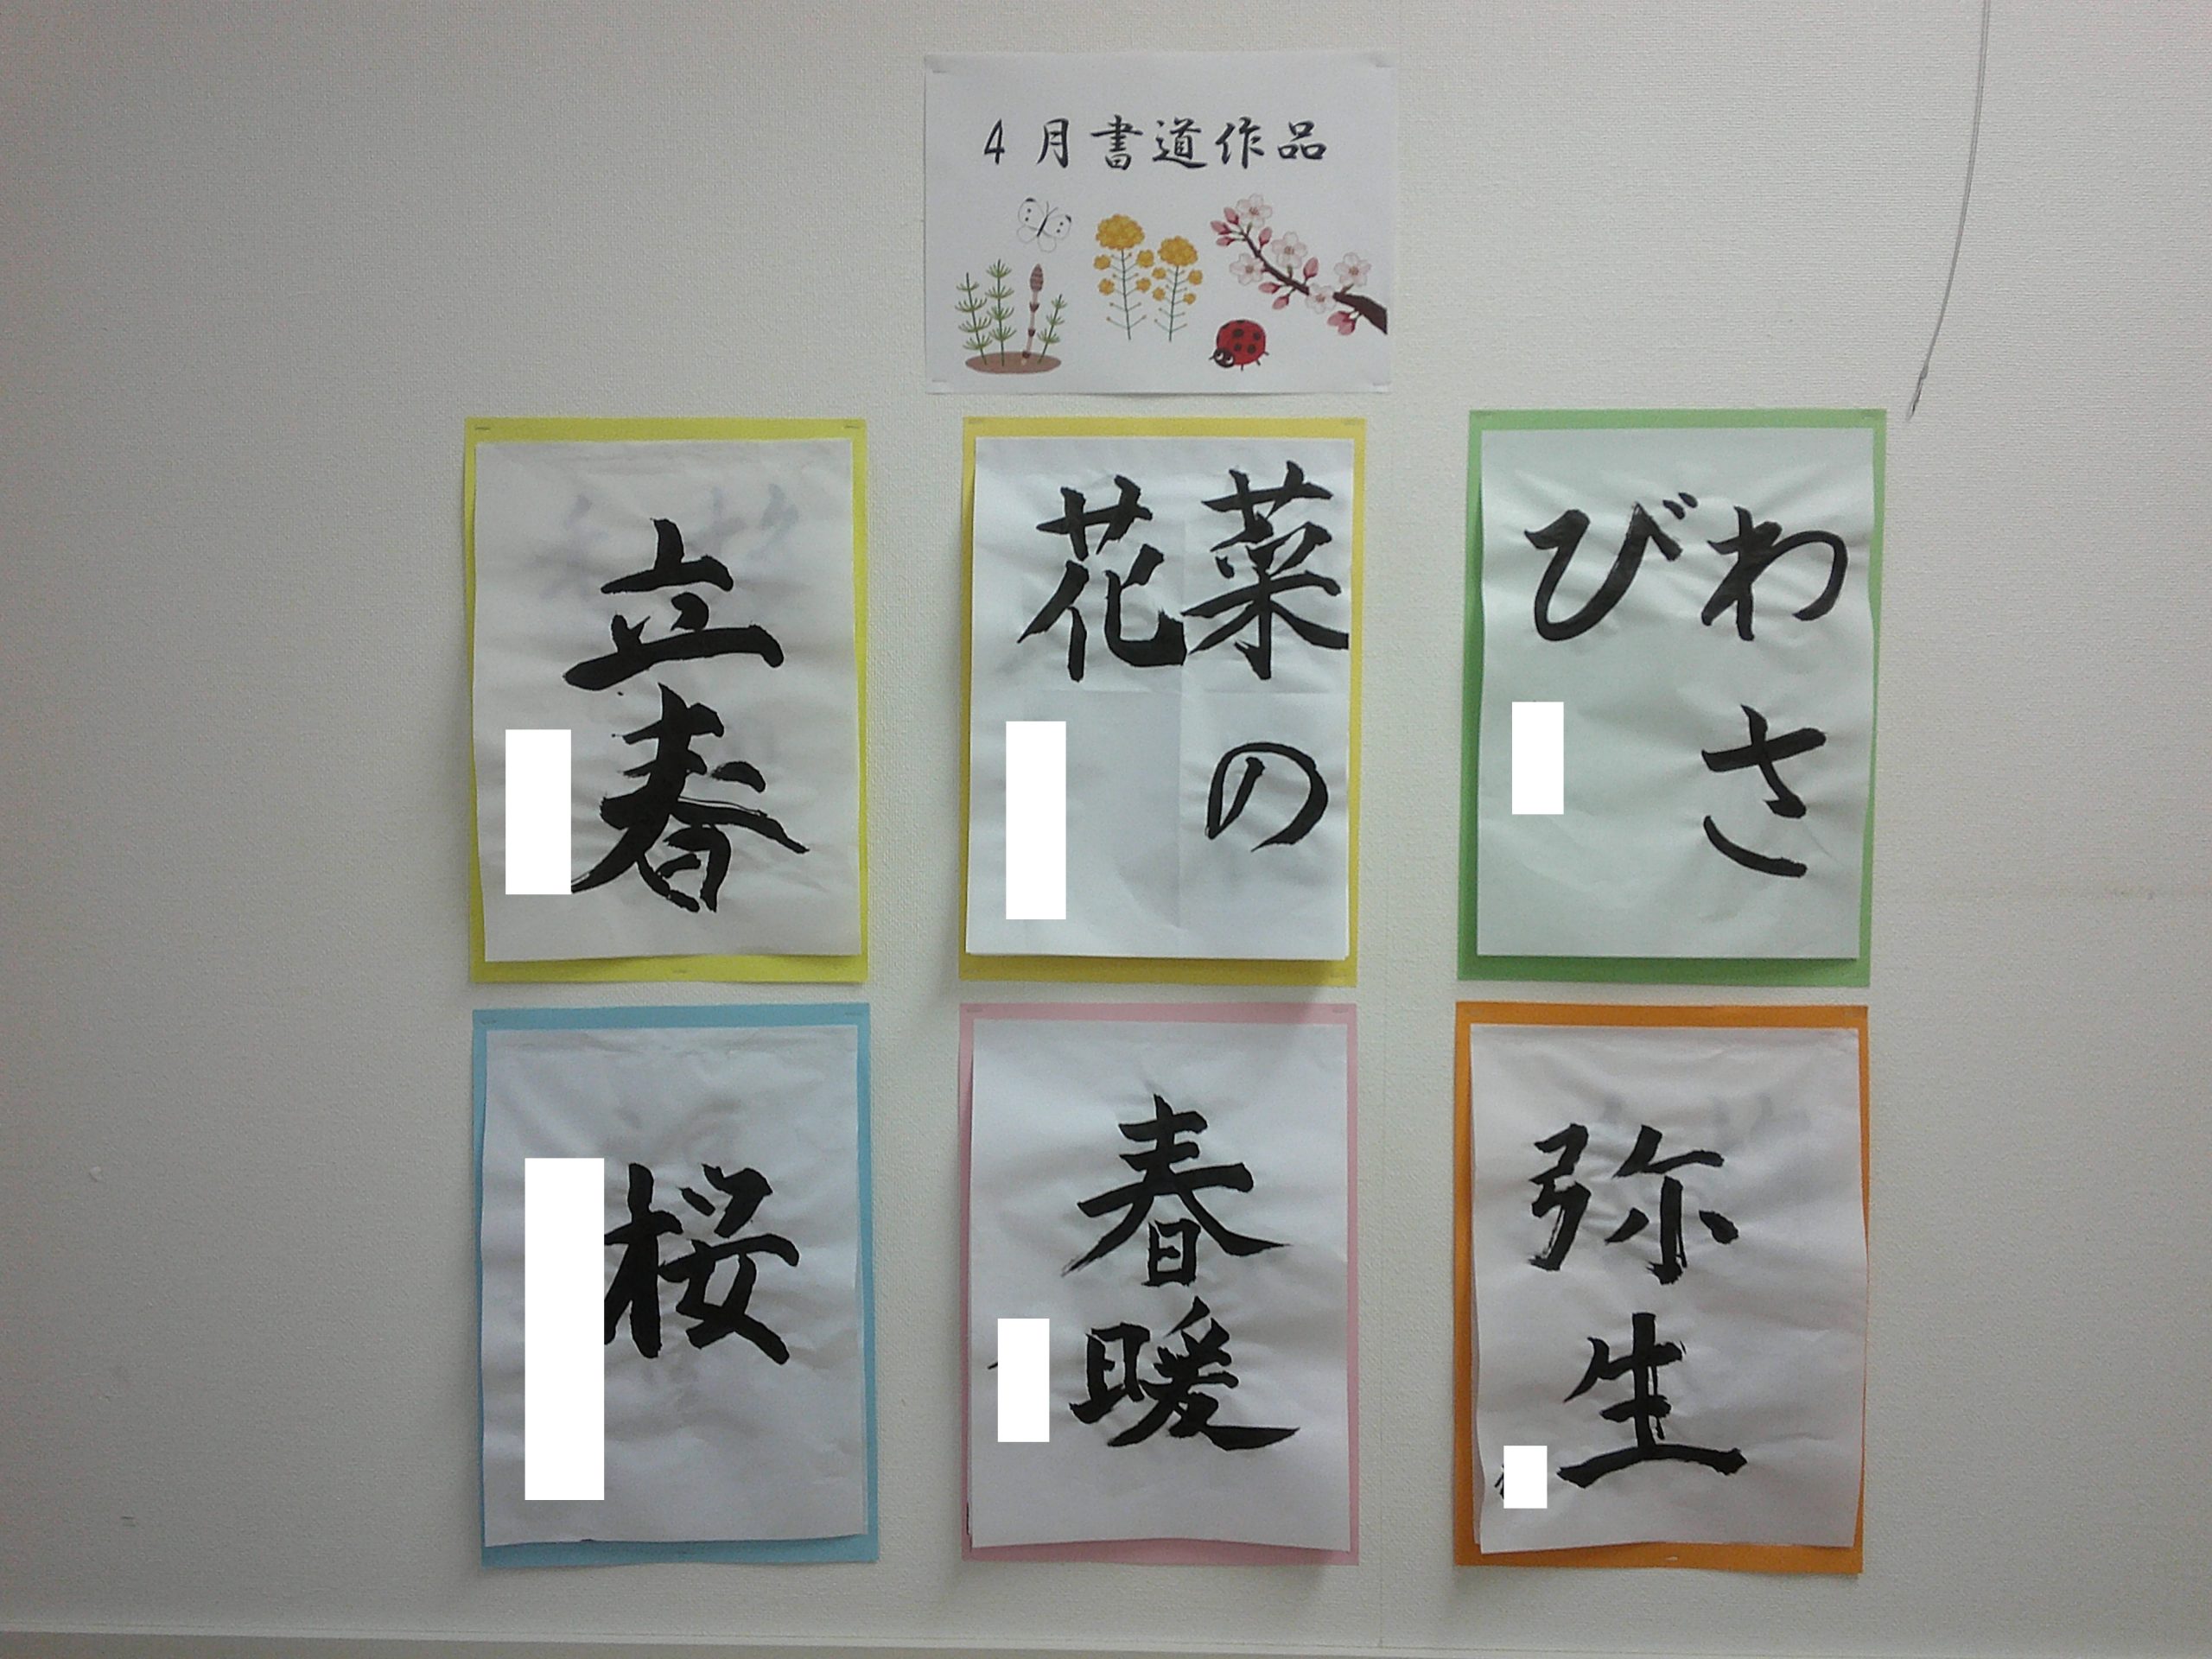 4月書道作品
立春
菜の
花
わさ
び
桜
春暖
弥生